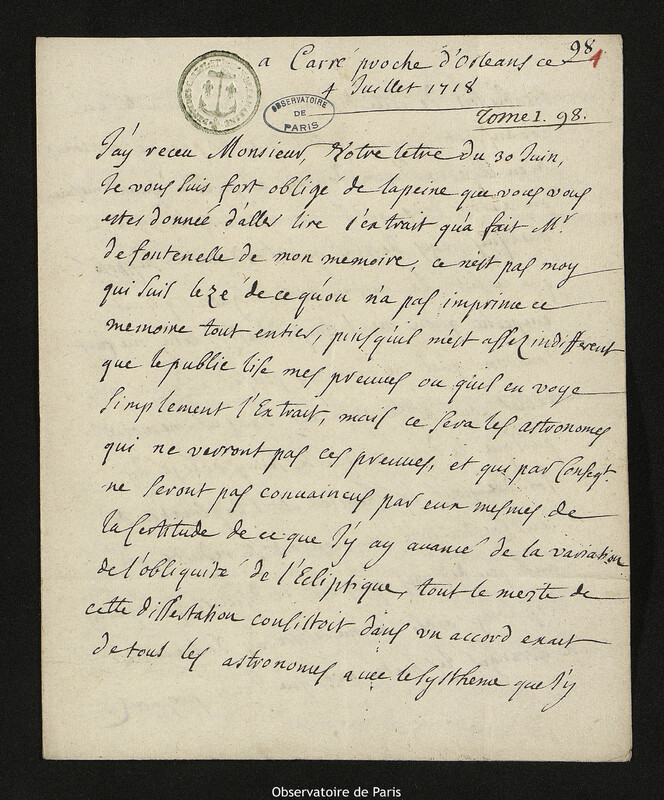 98
1
a Carré proche d'Orleans ce
4 Juillet 1718
OBSERVATOIRE DE PARIS
Tome 1. 98.
J'ay receu Monsieur, Votre letre du 30 Juin,
Je vous suis fort obligé de la peine que vous vous
estes donneé d'aller lire l'extrait qu'a fait Mr.
de fontenelle de mon memoire, ce n'est pas moy
qui suis lezé de ce qu'on n'a pas imprimé ce
memoire tout entier, puisqu'il m'est assez indifferent
que le public lise mes preuves ou qu'il en voye
simplement l'Extrait, mais ce sera les astronomes
qui ne verront pas ces preuves, et qui par Conseqt.
ne seront pas convaincus par eux mesmes de
la Certitude de ce que J'y ay avancé de la variation
de l'obliquité de l'Ecliptique, tout le merite de
cette dissertation consistoit dans un accord exact
de tous les astronomes avec le systheme que J'y
Observatoire de Paris